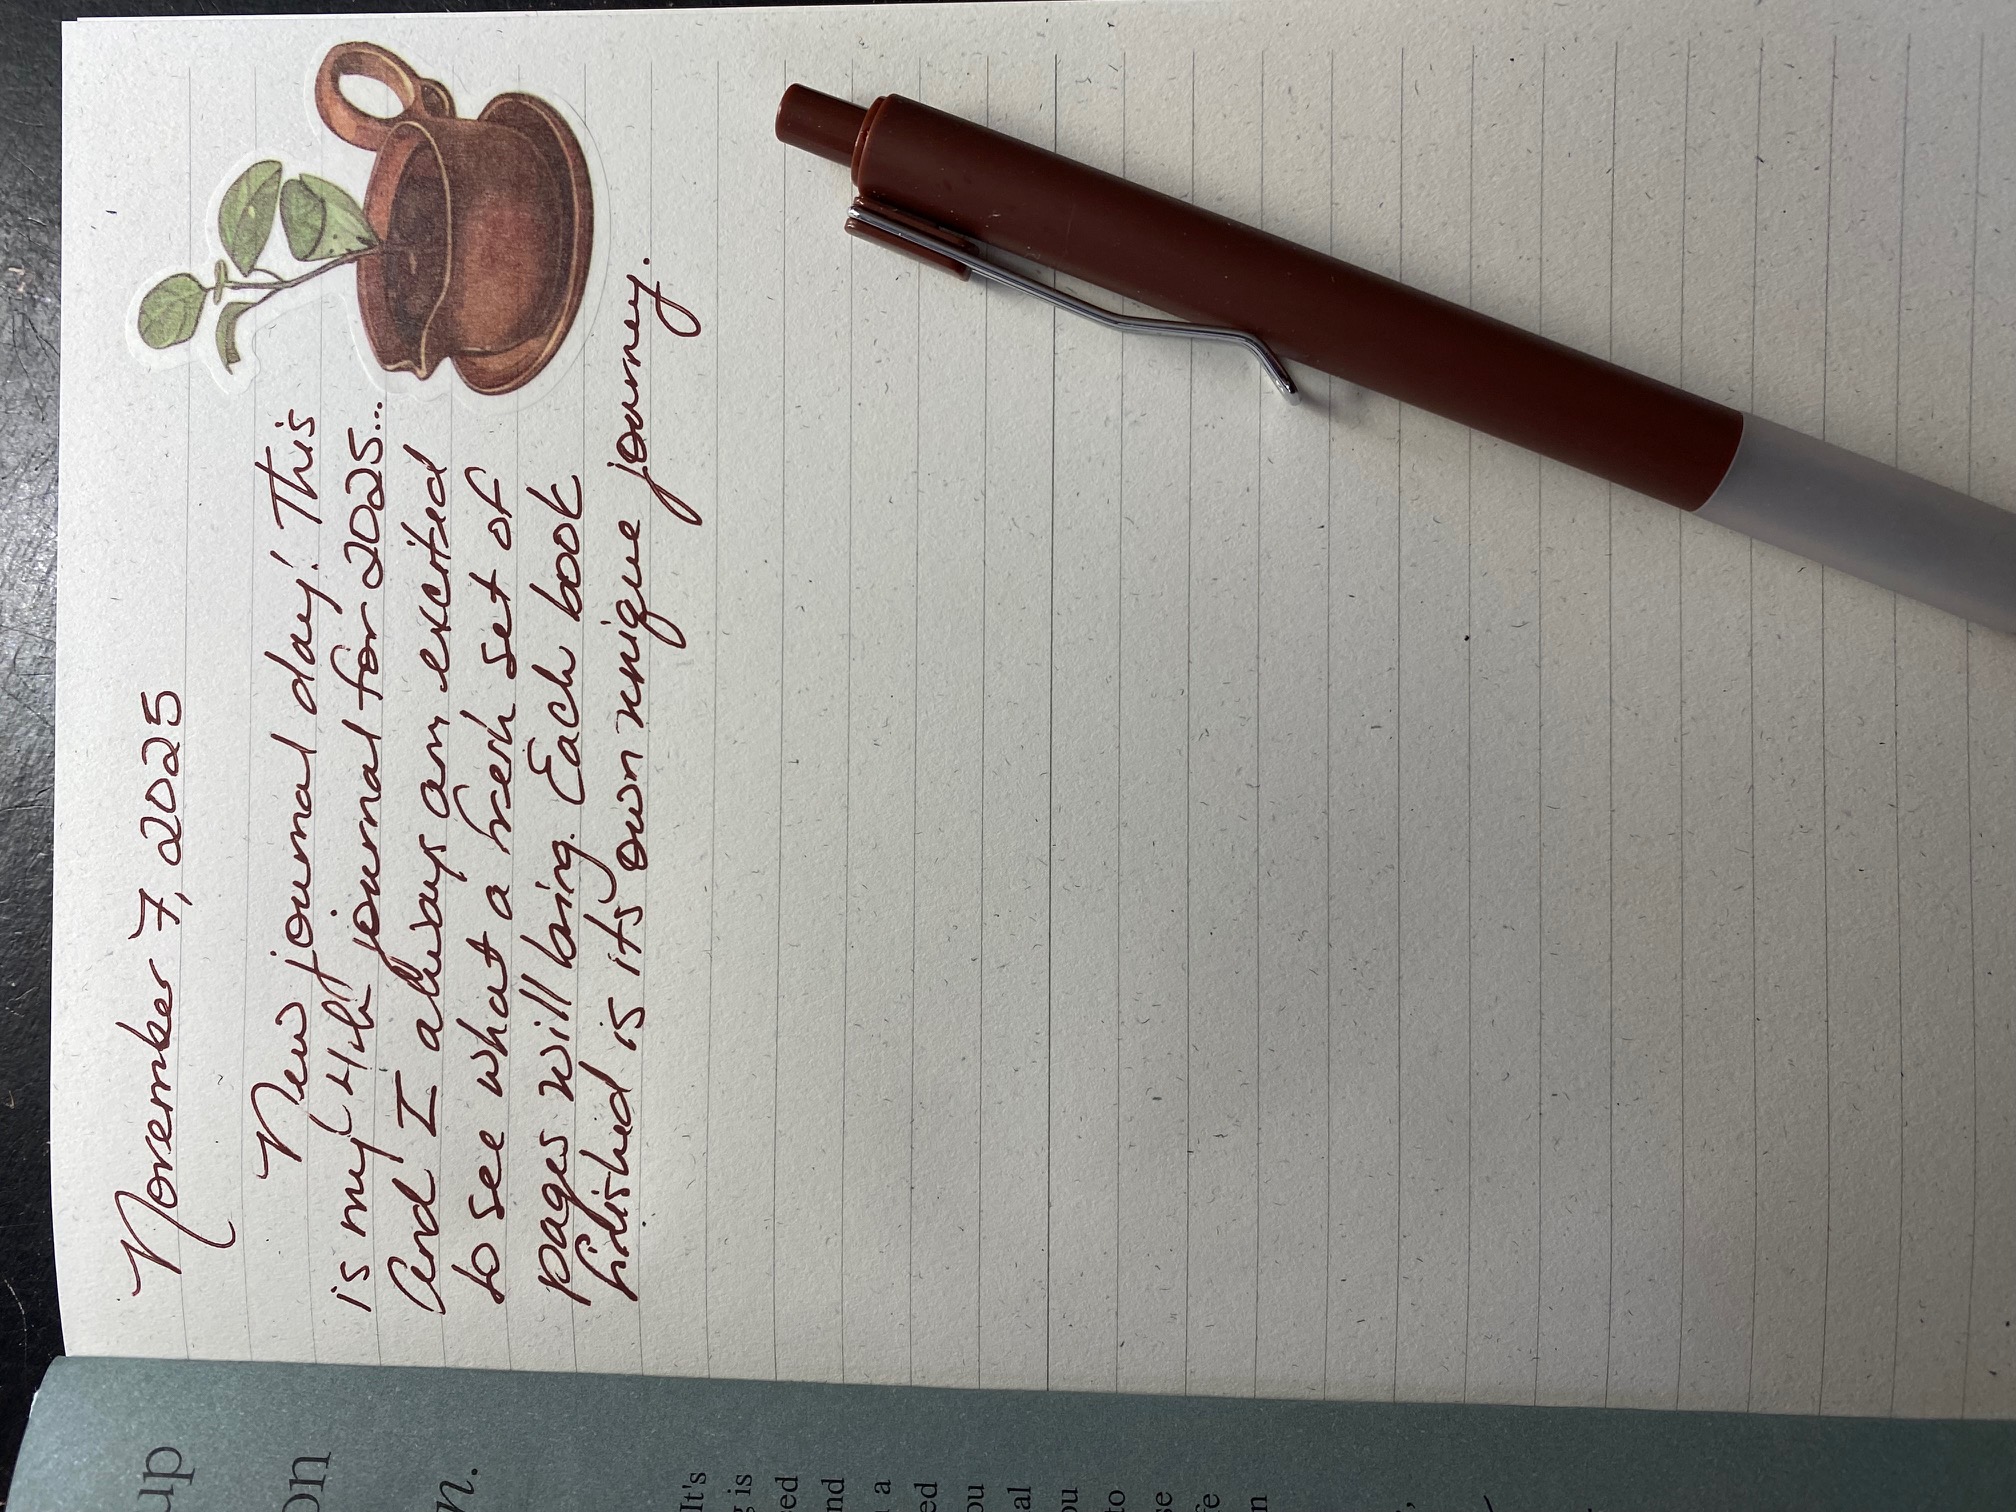 November 7, 2025
New journal day! This
is my 4th journal for 2025...
and I always am excited
to see what a fresh set of
pages will bring. Each book
finished is its own unique journey.
up
on
n.
It's
g is
ed
nd
a
ed
ou
al
ou
to
se
fe
n